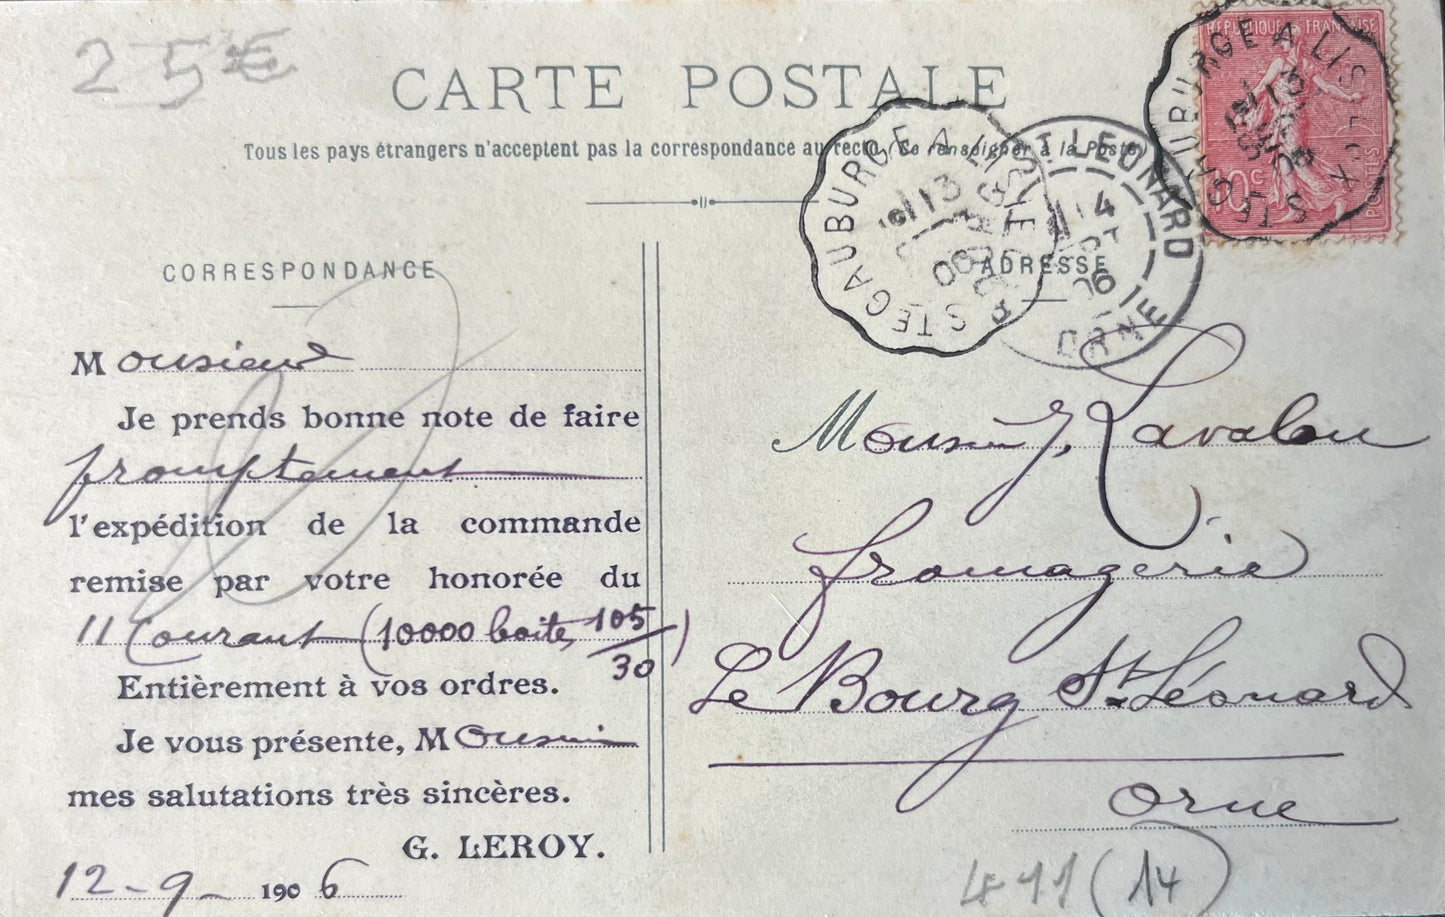 25€
CARTE POSTALE
Tous les pays étrangers n'acceptent pas la correspondance au recto (Se renseigner à la Poste)
REPUBLIQUE FRANÇAISE
10c
POSTES
STE GAUBURGE A LISIEUX
13
06
STE GAUBURGE A LISIEUX
13
06
ST LEONARD
14
06
ORNE
CORRESPONDANCE
Monsieur
Je prends bonne note de faire
promptement
l'expédition de la commande
remise par votre honorée du
11 Courant (10000 boite, 105/30)
Entièrement à vos ordres.
Je vous présente, Monsieur
mes salutations très sincères.
G. LEROY.
12-9- 1906
ADRESSE
Monsieur J. Lavalou
fromagerie
Le Bourg St Léonard
Orne
(14)